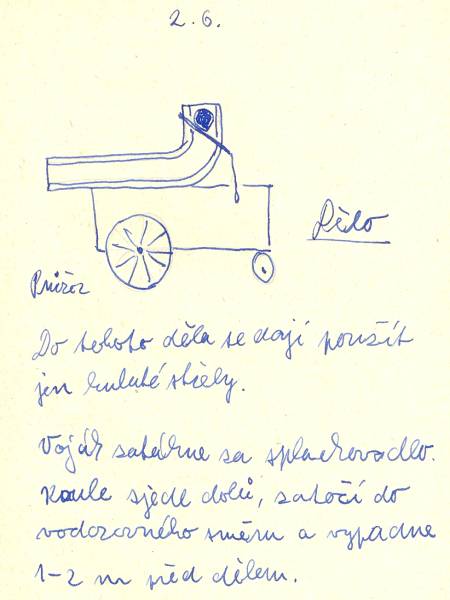 2.6.
Dělo
Průřez
Do tohoto děla se dají použít
jen kulaté střely.
Voják zatáhne za splachovadlo.
Koule sjede dolů, zatočí do
vodorovného směru a vypadne
1-2 m před dělem.